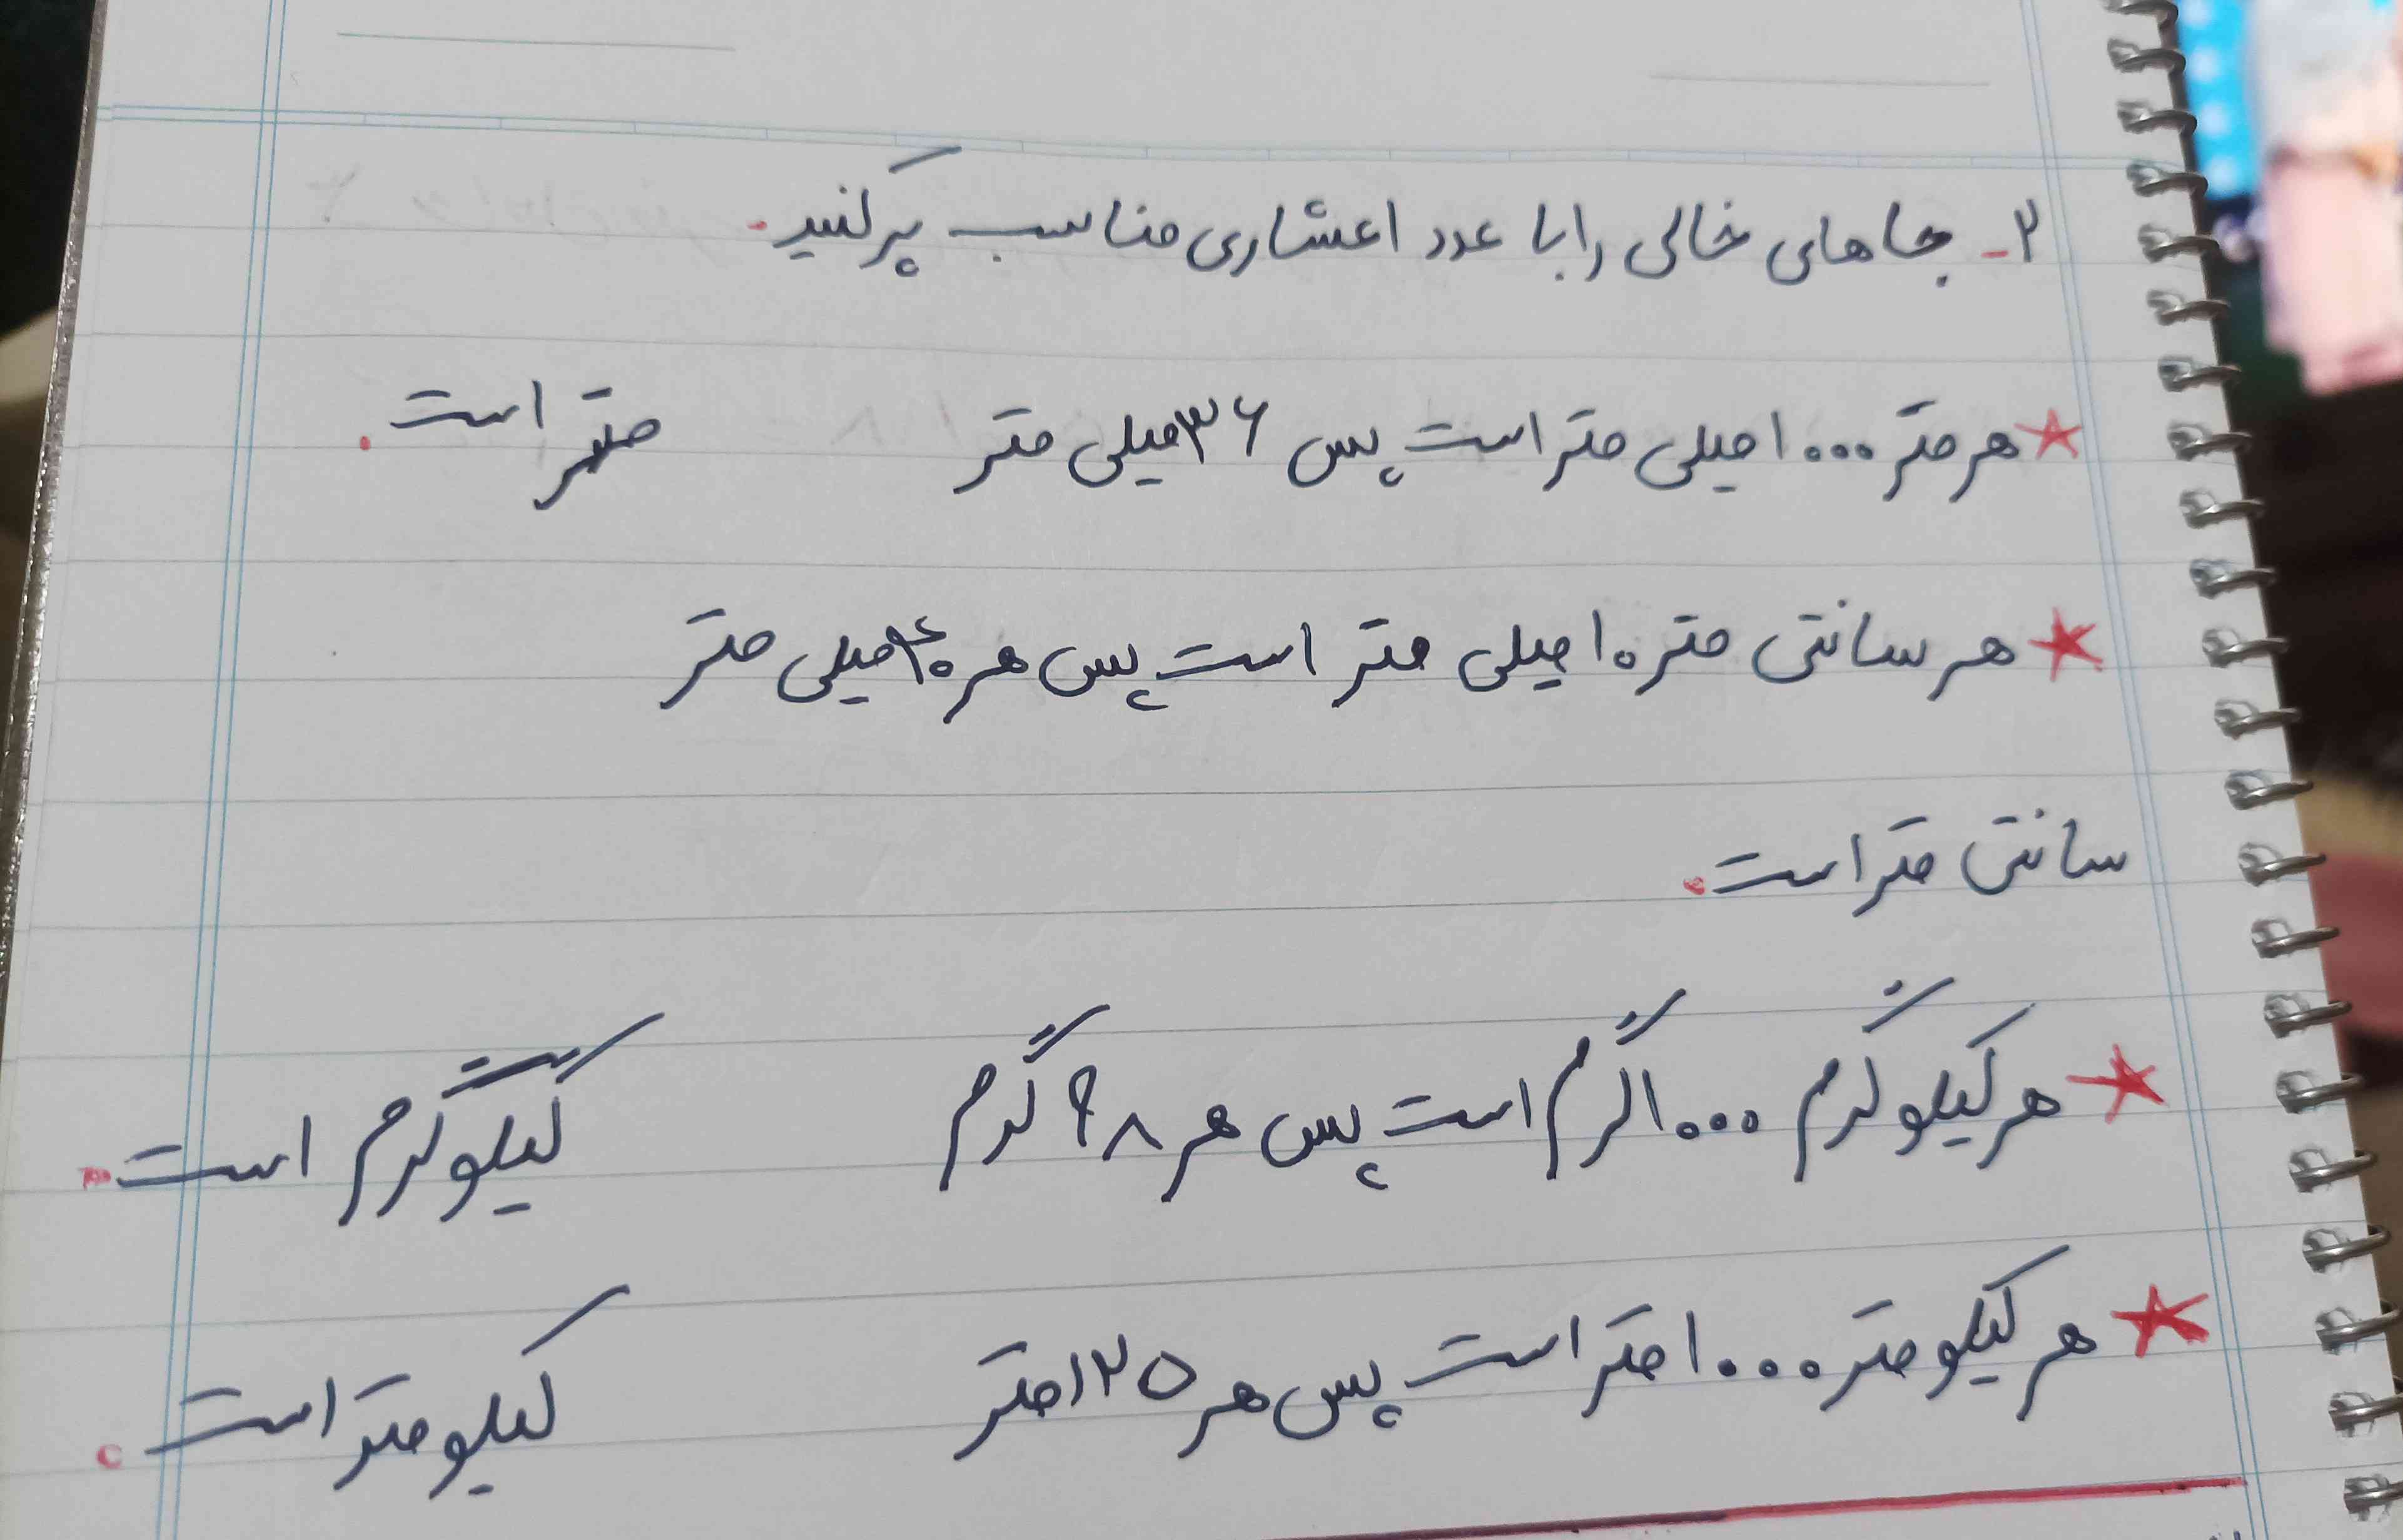 ۲- جاهای خالی را با عدد اعشاری مناسب پر کنید.
هر متر ۱۰۰۰ میلی متر است پس ۳۶ میلی متر متر است.
هر سانتی متر ۱۰ میلی متر است پس هر میلی متر
سانتی متر است.
هر کیلوگرم ۱۰۰۰ گرم است پس هر ۹۸ گرم کیلوگرم است.
هر کیلومتر ۱۰۰۰ متر است پس هر ۱۲۵ متر کیلومتر است.